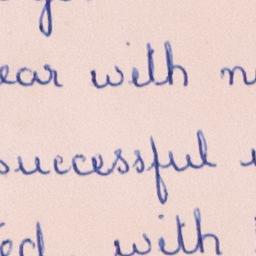 ear with n
successful
ed with